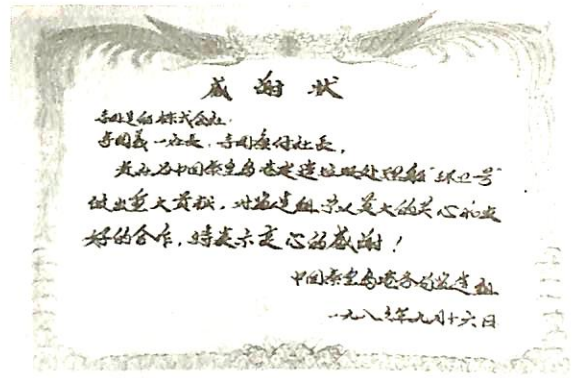 感谢状
寺冈造船株式会社
寺冈义一社长、寺冈 付社长，
贵社为中国秦皇岛港建造垃圾处理船"环卫号"
做出重大贡献，对监造组 以莫大的关心和友
好的合作，特表示衷心的感谢！
中国秦皇岛港务局监造组
一九八 年九月十六日